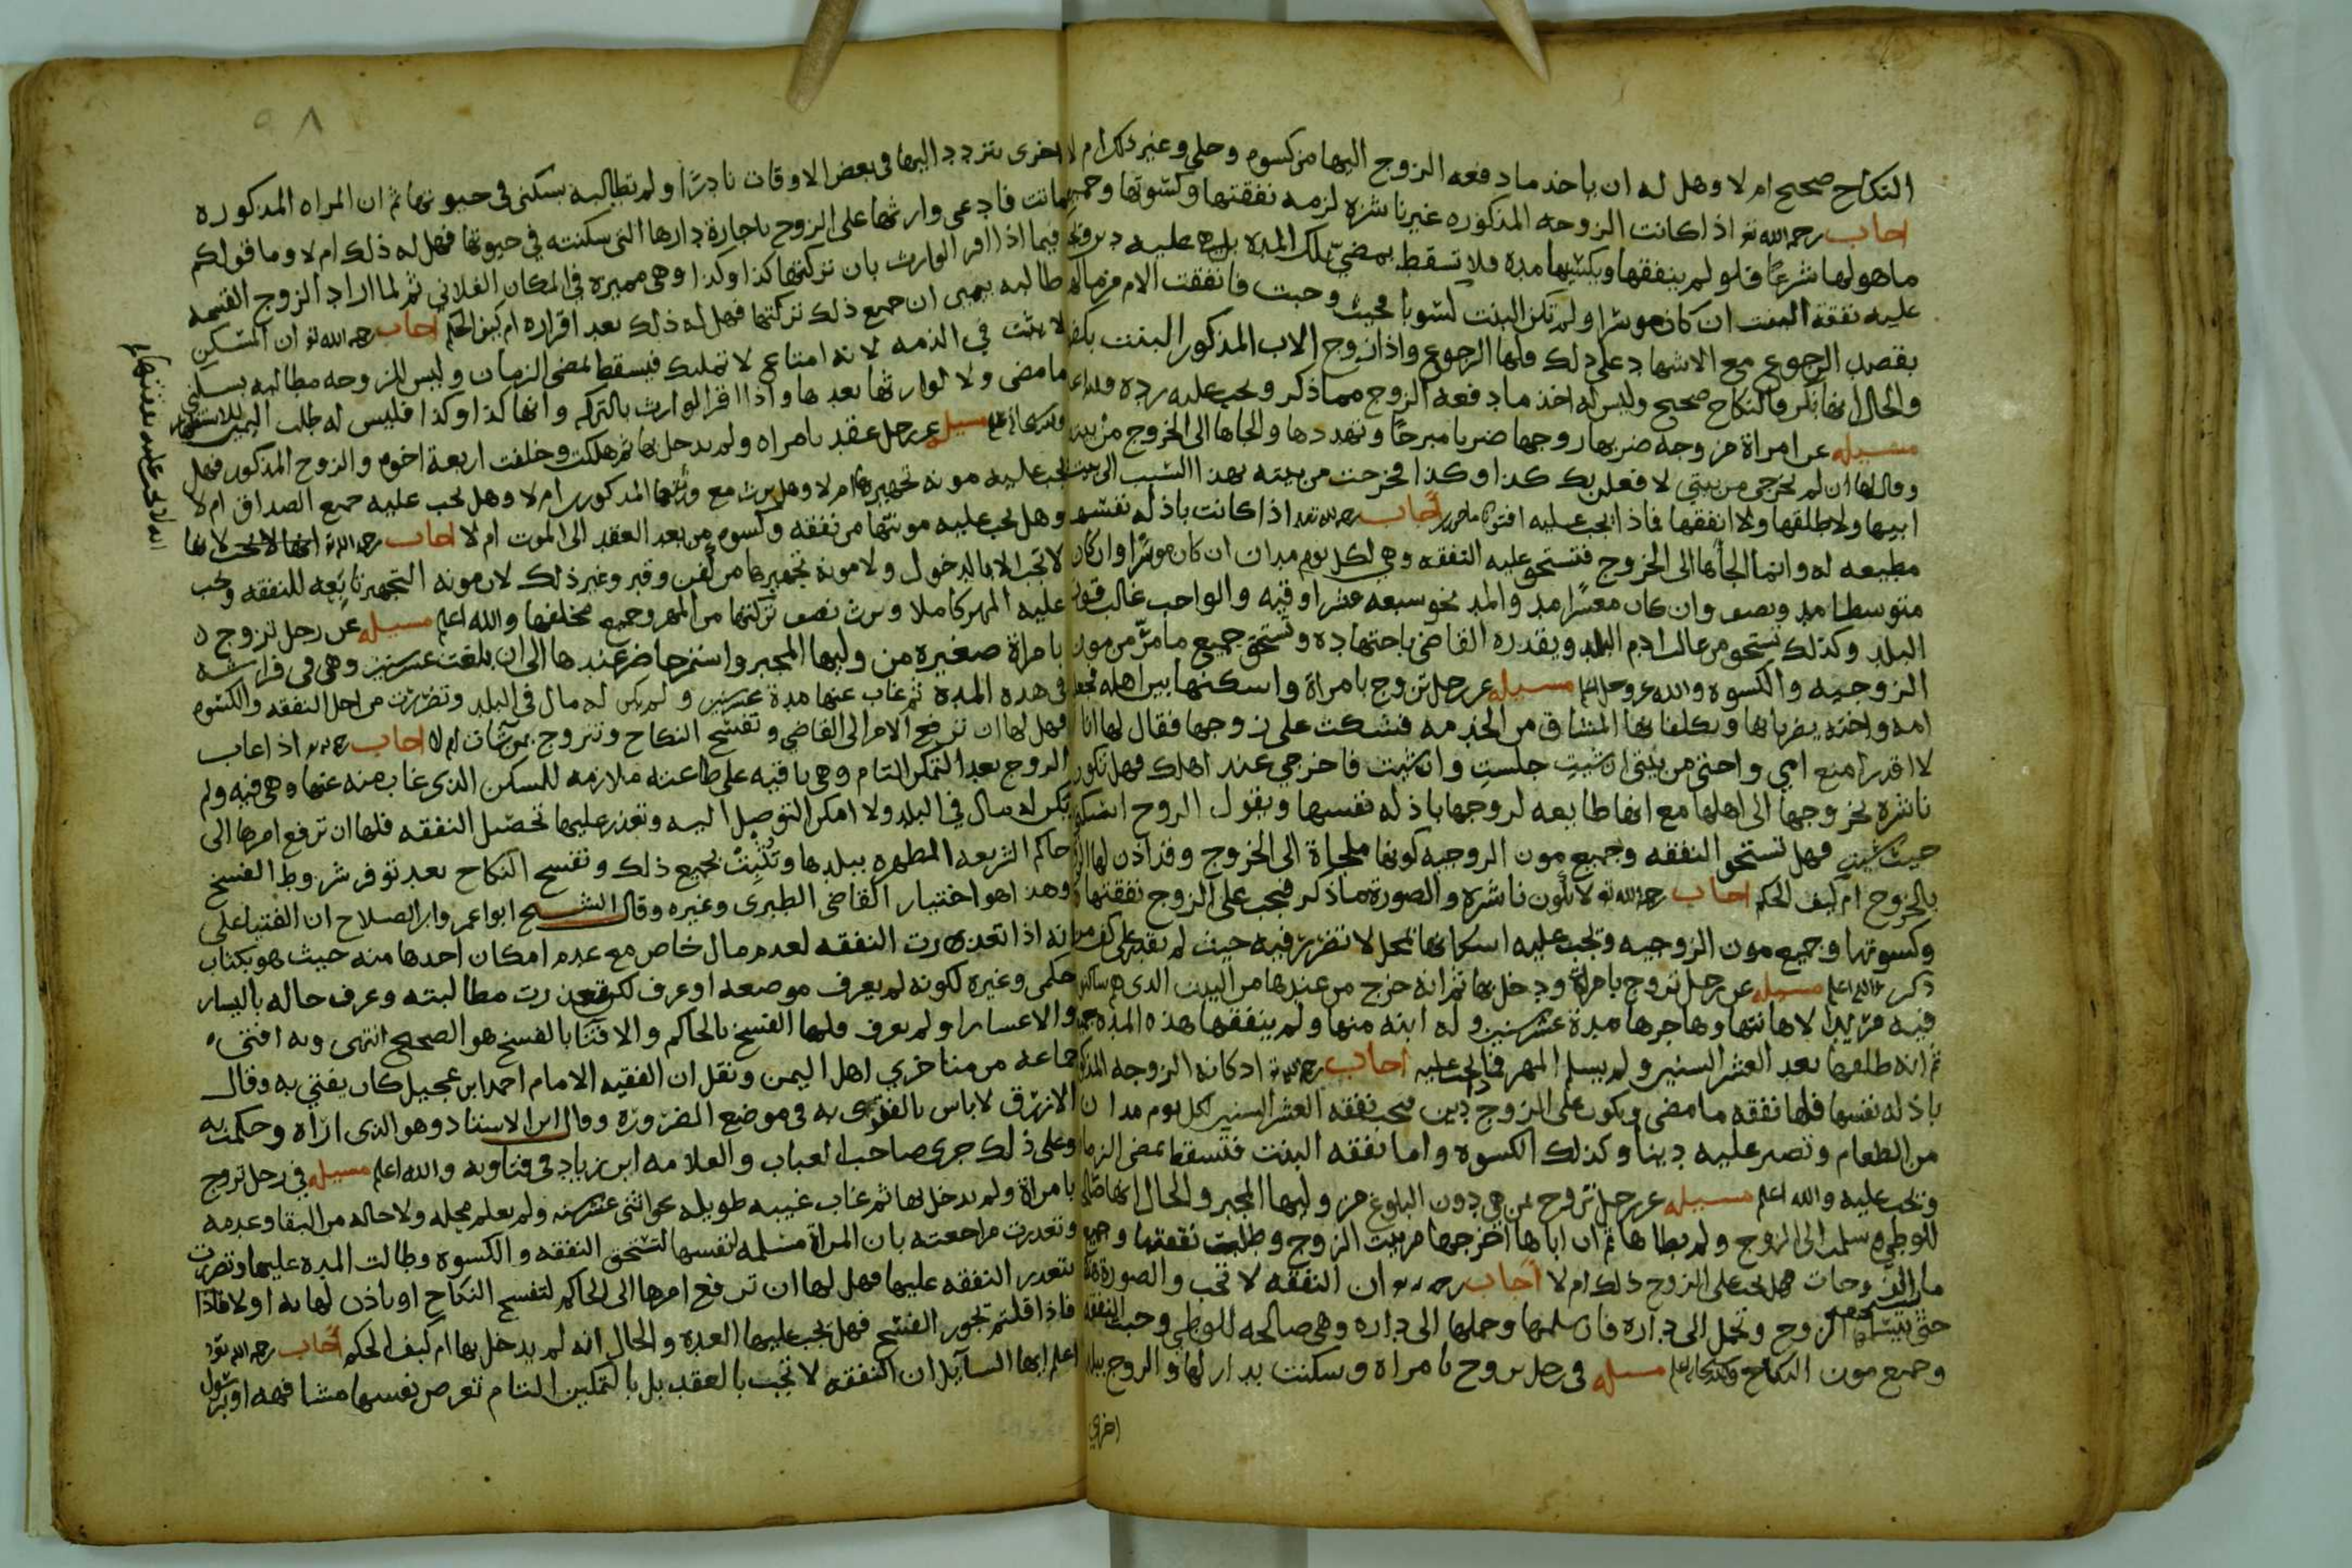 النكاح صحيح ام لا وهل له ان ياخذ ما دفعه الزوج اليها من كسوه وحلي وغير ذلك ام لا
اجاب رحمه الله تع اذا كانت الزوجه المذكوره غير ناشزه لزمه نفقتها وكسوتها وجميع
ما هو لها شرعًا فلو لم ينفقها ويكسيها مده فلا تسقط بمضي تلك المده بل عليه دين
عليه نفقة البنت ان كان موسرا ولم تكن البنت كسوبا بحيث وجبت فانفقت الام من مالها
بقصد الرجوع مع الاشهاد على ذلك فلها الرجوع واذا زوج الاب المذكور البنت بكفؤ
والحال انها بكر فالنكاح صحيح وليس له اخذ ما دفعه الزوج مما ذكر ويجب عليه رده
مسيله عن امراة مزوجه ضربها زوجها ضربا مبرحًا وتهددها والجاها الى الخروج من بيته
وقال لها ان لم تخرجي من بيتي لا فعلن بك كذا وكذا فخرجت من بيته بهذا السبب الى بيت
ابيها ولا طلقها ولا انفقها فماذا يجب عليه افتونا ماجورين اجاب رحمه الله تع اذا كانت باذله نفسها
مطيعه له وانما الجاها الى الخروج فتستحق عليه النفقه وهي لكل يوم مدان ان كان موسرًا وان كان
متوسطا مد ونصف وان كان معسرًا مد والمد نحو سبعه عشر اوقيه والواجب غالب قوت
البلد وكذلك تستحق من غالب ادم البلد ويقدره القاضي باجتهاده وتستحق جميع ما مرّ من مون
الزوجيه والكسوه والله عز وجل اعلم مسيله عن رجل تزوج بامراة واسكنها بين اهله فجعل
امه واخته يضربانها ويكلفانها المشاق من الخدمه فشكت على زوجها فقال لها انا
لا اقدر امنع امي واختي من بيتي ان شيتِ جلستِ وان شيت فاخرجي عند اهلك فهل تكون
ناشزه بخروجها الى اهلها مع انها طايعه لزوجها باذله نفسها ويقول الزوج اسكني
حيث شيتي فهل تستحق النفقه وجميع مون الزوجيه كونها ملجاة الى الخروج وقد اذن لها الزوج
بالخروج ام كيف الحكم اجاب رحمه الله تع لا تكون ناشزه والصورة ما ذكر فيجب على الزوج نفقتها
وكسوتها وجميع مون الزوجيه ويجب عليه اسكانها بمحل لا تضرر فيه حيث لم يقدر على كف من
ذكر والله اعلم مسيله عن رجل تزوج بامراة ودخل بها ثم انه خرج من عندها من البيت الذي هم ساكنين
فيه مريدا لاهانتها وهاجرها مدة عشر سنين وله ابنه منها ولم ينفقها هذه المده
ثم انه طلقها بعد العشر السنين ولم يسلم المهر فما يجب عليه اجاب رحمه الله تع اذ كانه الزوجه المذكوره
باذله نفسها فلها نفقه ما مضى ويكون على الزوج دين فيجب نفقه العشر السنين لكل يوم مدان
من الطعام وتصير عليه دينا وكذلك الكسوه واما نفقه البنت فتسقط بمضي الزمان
ويجب عليه والله اعلم مسيله عن رجل تزوج بمن هي دون البلوغ من وليها المجبر والحال انها صالحه
للوطي سلمت الى الزوج ولم يطاها ثم ان اباها اخرجها من بيت الزوج وطلبت نفقتها وجميع
ما للزوجات فهل يجب على الزوج ذلك ام لا اجاب رحمه الله تع ان النفقه لا تجب والصورة هذه
حتى يتسلمها الزوج وتحمل الى داره فان سلمها وحملها الى داره وهي صالحه للوطي وجبت النفقه
وجميع مون النكاح والله اعلم مسيله في رجل تزوج بامراه وسكنت بدار لها والزوج ببلد
اخرى
٥٨
اخرى يتردد اليها في بعض الاوقات نادرًا ولم تطالبه بسكنى في حيوتها ثم ان المراه المذكوره
ماتت فادعى وارثها على الزوج باجارة دارها التي سكنته في حيوتها فهل له ذلك ام لا وما قولكم
فيما اذا اقر الوارث بان تركتها كذا وكذا وهي مميزه في المكان الفلاني ثم لما اراد الزوج القسمه
طالبه بيمين ان جميع ذلك تركتها فهل له ذلك بعد اقراره ام كيف الحكم اجاب رحمه الله تع ان المسكن
لا يثبت في الذمه لانه امتاع لا تمليك فيسقط لمضي الزمان وليس للزوجه مطالبه بسكنى
ما مضى ولا لوارثها بعدها واذا اقر الوارث بالتركه وانها كذا وكذا فليس له طلب اليمين
مسيله عن رجل عقد بامراه ولم يدخل بها ثم هلكت وخلفت اربعة اخوه والزوج المذكور فهل
يجب عليه مونه تجهيزها ام لا وهل يرث مع ورثتها المذكورين ام لا وهل يجب عليه جميع الصداق ام لا
وهل يجب عليه مونتها من نفقه وكسوه من بعد العقد الى الموت ام لا اجاب رحمه الله تع انها لا تجب لانها
لا تجب الا بالدخول ولا مونة تجهيزها من كفن وقبر وغير ذلك لان مونه التجهيز تابعه للنفقه ويجب
عليه المهر كاملا ويرث نصف تركتها من المهر وجميع مخلفها والله اعلم مسيله عن رجل تزوج
بامراة صغيره من وليها المجبر واستمر حاضر عندها الى ان بلغت عشر سنين وهي في فراشه
في هذه المدة ثم غاب عنها مدة عشر سنين ولم يكن له مال في البلد وتضررت من اجل النفقه والكسوه
فهل لها ان ترفع الامر الى القاضي وتفسخ النكاح وتتزوج بمن شات ام لا اجاب رحمه الله تع اذا غاب
الزوج بعد التمكن التام وهي باقيه على طاعته ملازمه للسكن الذي غاب منه عنها وهي فيه ولم
يكن له مال في البلد ولا امكن التوصل اليه وتعذر عليها تحصيل النفقه فلها ان ترفع امرها الى
حاكم الشريعه المطهره ببلدها وتُثبِتُ بجميع ذلك وتفسخ النكاح بعد توفر شروط الفسخ
وهذا هو اختيار القاضي الطبري وغيره وقال الشيخ ابوا عمرو ابن الصلاح ان الفتيا على
انه اذا تعذرت النفقه لعدم مال خاص مع عدم امكان اخذها منه حيث هو بكتاب
حكمي وغيره لكونه لم يعرف موضعه او عرف لكن تعذرت مطالبته وعرف حاله باليسار
والاعسار او لم يعرف فلها الفسخ بالحاكم والافتا بالفسخ هو الصحيح انتهى وبه افتى
جماعه من متاخري اهل اليمن ونقل ان الفقيه الامام احمد ابن عجيل كان يفتي به وقال
الازرق لا باس بالفتوى به في موضع الضروره وقال ابن الاستاد وهو الذي اراه وحكمت به
وعلى ذلك جرى صاحب العباب والعلامه ابن زياد في فتاويه والله اعلم مسيله في رجل تزوج
بامراة ولم يدخل بها ثم غاب غيبه طويله نحو اثنى عشر سنه ولم يعلم محله ولا حاله من البقا وعدمه
وتعذرت مراجعته بان المراة مسلمه لنفسها لتستحق النفقه والكسوه وطالت المده عليها وتضررت
بتعذر النفقه عليها فهل لها ان ترفع امرها الى الحاكم لتفسخ النكاح او ياذن لها به او لا فاذا
فاذا قلتم تجوز الفسخ فهل يجب عليها العده والحال انه لم يدخل بها ام كيف الحكم اجاب رحمه الله تع
اعلم ايها السايل ان النفقه لا تجب بالعقد بل بالتمكين التام تعرض نفسها مشافهه او برسول